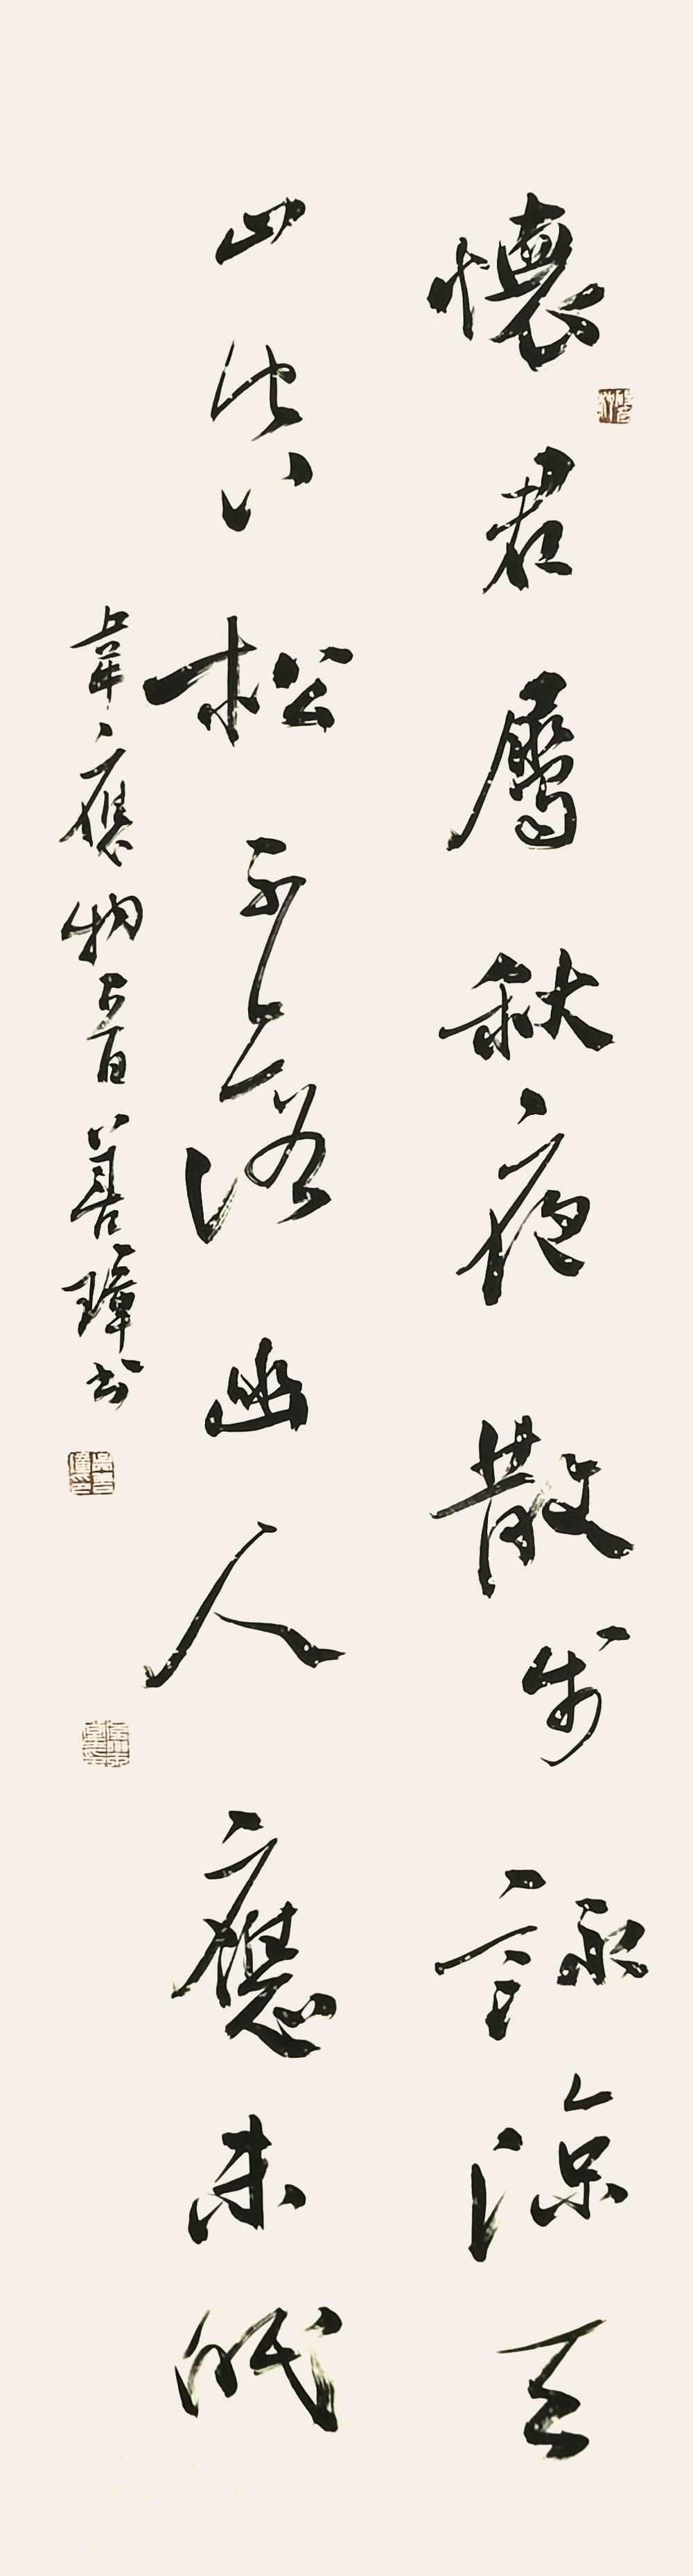 懷君屬秋夜散步詠涼天
山空松子落幽人應未眠
韋應物 善璋書